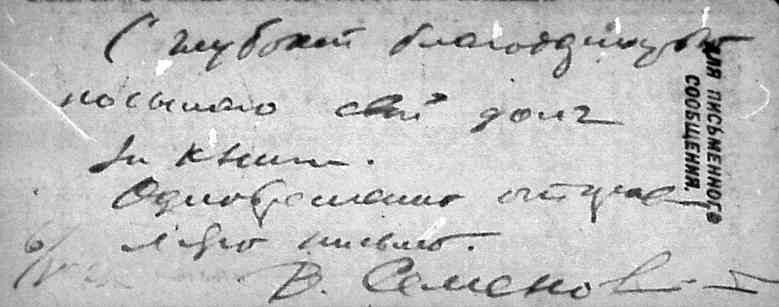 С глубокой благодарностью
посылаю свой долг
за книги.
Одновременно
письмо.
В. Семенов
ДЛЯ ПИСЬМЕННОГО
СООБЩЕНИЯ